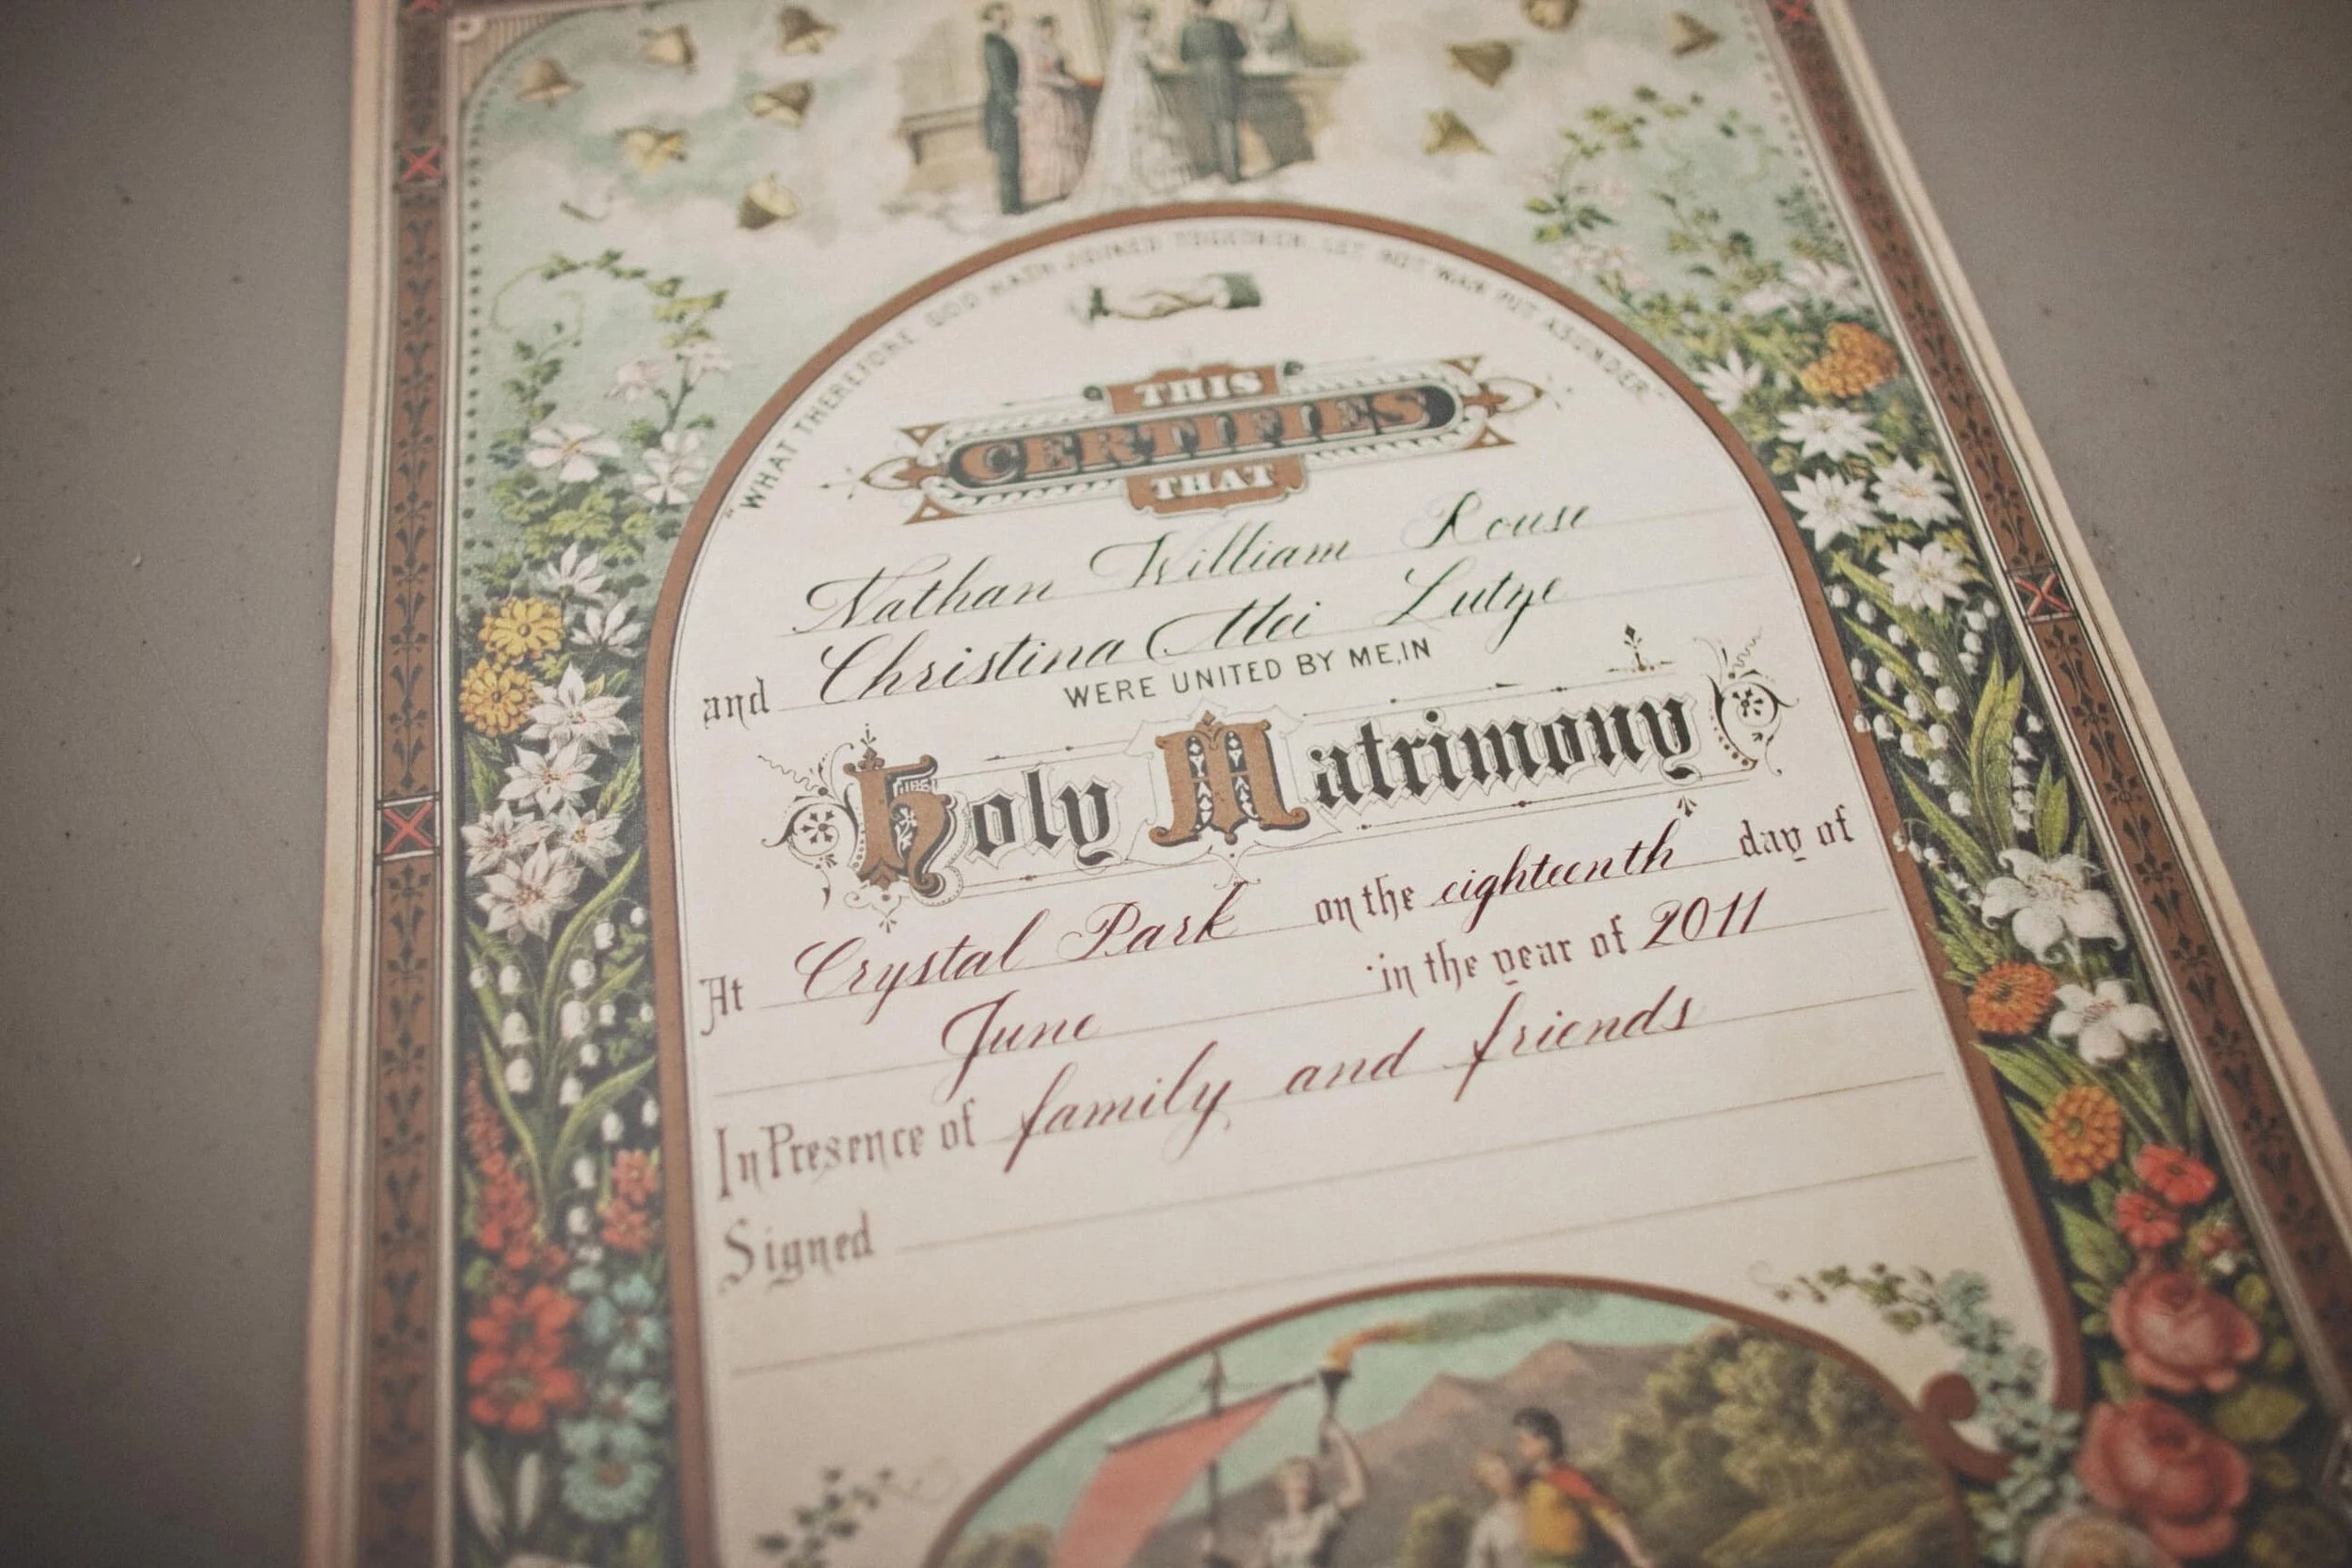 "WHAT THEREFORE GOD HATH JOINED TOGETHER, LET NOT MAN PUT ASUNDER."
THIS
CERTIFIES
THAT
Nathan William Rouse
and Christina Mei Lutye
WERE UNITED BY ME, IN
Holy Matrimony
At Crystal Park on the eighteenth day of
June in the year of 2011
In Presence of family and friends
Signed